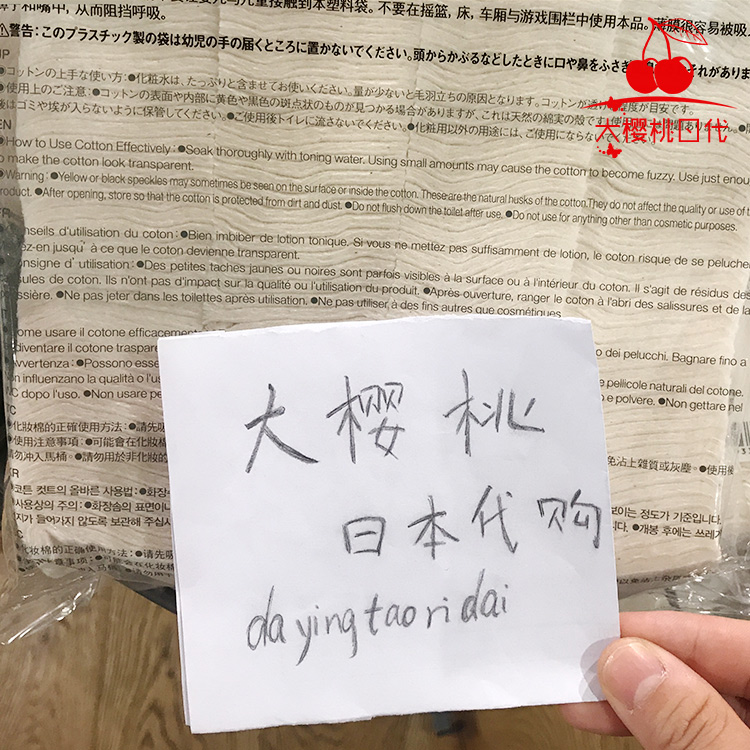 鼻和嘴中，从而阻挡呼吸。
接触到本塑料袋。不要在摇篮，床，车厢与游戏围栏中使用本品。薄膜很容易被吸入
警告：このプラスチック製の袋は幼児の手の届くところに置かないでください。頭からかぶるなどしたときに口や鼻をふさぎ
それがありま
大樱桃日代
JP
●コットンの上手な使い方：●化粧水は、たっぷりと含ませてお使いください。量が少ないと毛羽立ちの原因となります。コットンが透け
程度が目安です。
●使用上のご注意：●コットンの表面や内部に黄色や黒色の斑点状のものが見つかる場合がありますが、これは天然の綿実の殻です。
後はゴミや埃が入らないように保管してください。●ご使用後トイレに流さないでください。●化粧用以外の用途には、ご使用にならない
EN
●How to Use Cotton Effectively：●Soak thoroughly with toning water. Using small amounts may cause the cotton to become fuzzy. Use just enou
o make the cotton look transparent.
●Warning：●Yellow or black speckles may sometimes be seen on the surface or inside the cotton. These are the natural husks of the cotton. They do not affect the quality or use of t
roduct. ●After opening, store so that the cotton is protected from dirt and dust. ●Do not flush down the toilet after use. ●Do not use for anything other than cosmetic purposes.
FR
onseils d'utilisation du coton：●Bien imbiber de lotion tonique. Si vous ne mettez pas suffisamment de lotion, le coton risque de se pelucher
ez-en jusqu'à ce que le coton devienne transparent.
onsigne d'utilisation：●Des petites taches jaunes ou noires sont parfois visibles à la surface ou à l'intérieur du coton. Il s'agit de résidus des
ules de coton. Ils n'ont pas d'impact sur la qualité ou l'utilisation du produit. ●Après ouverture, ranger le coton à l'abri des salissures et de la
ussière. ●Ne pas jeter dans les toilettes après utilisation. ●Ne pas utiliser, à des fins autres que cosmétiques.
ome usare il cotone efficacemen
o dei pelucchi. Bagnare fino a
diventare il cotone traspar
vvertenza：●Possono esse
pellicole naturali del cotone.
n influenzano la qualità o l'us
o e polvere. ●Non gettare nel
WC dopo l'uso. ●Non usare pe
TC
●化妝棉的正確使用方法：●請先吸
●使用注意事項：●可能會在化妝棉
免沾上雜質或灰塵。●使用後
請勿沖入馬桶。●請勿用於非化妝的
KR
코튼 컷트의 올바른 사용법：●화장수
보이는 정도가 기준입니다.
사용상의 주의：●화장솜의 표면이나
니다. ●개봉 후에는 쓰레기
지가 들어가지 않도록 보관해 주십시
化妆棉的正确使用方法：●请先吸
大樱桃
日本代购
da ying tao ri dai